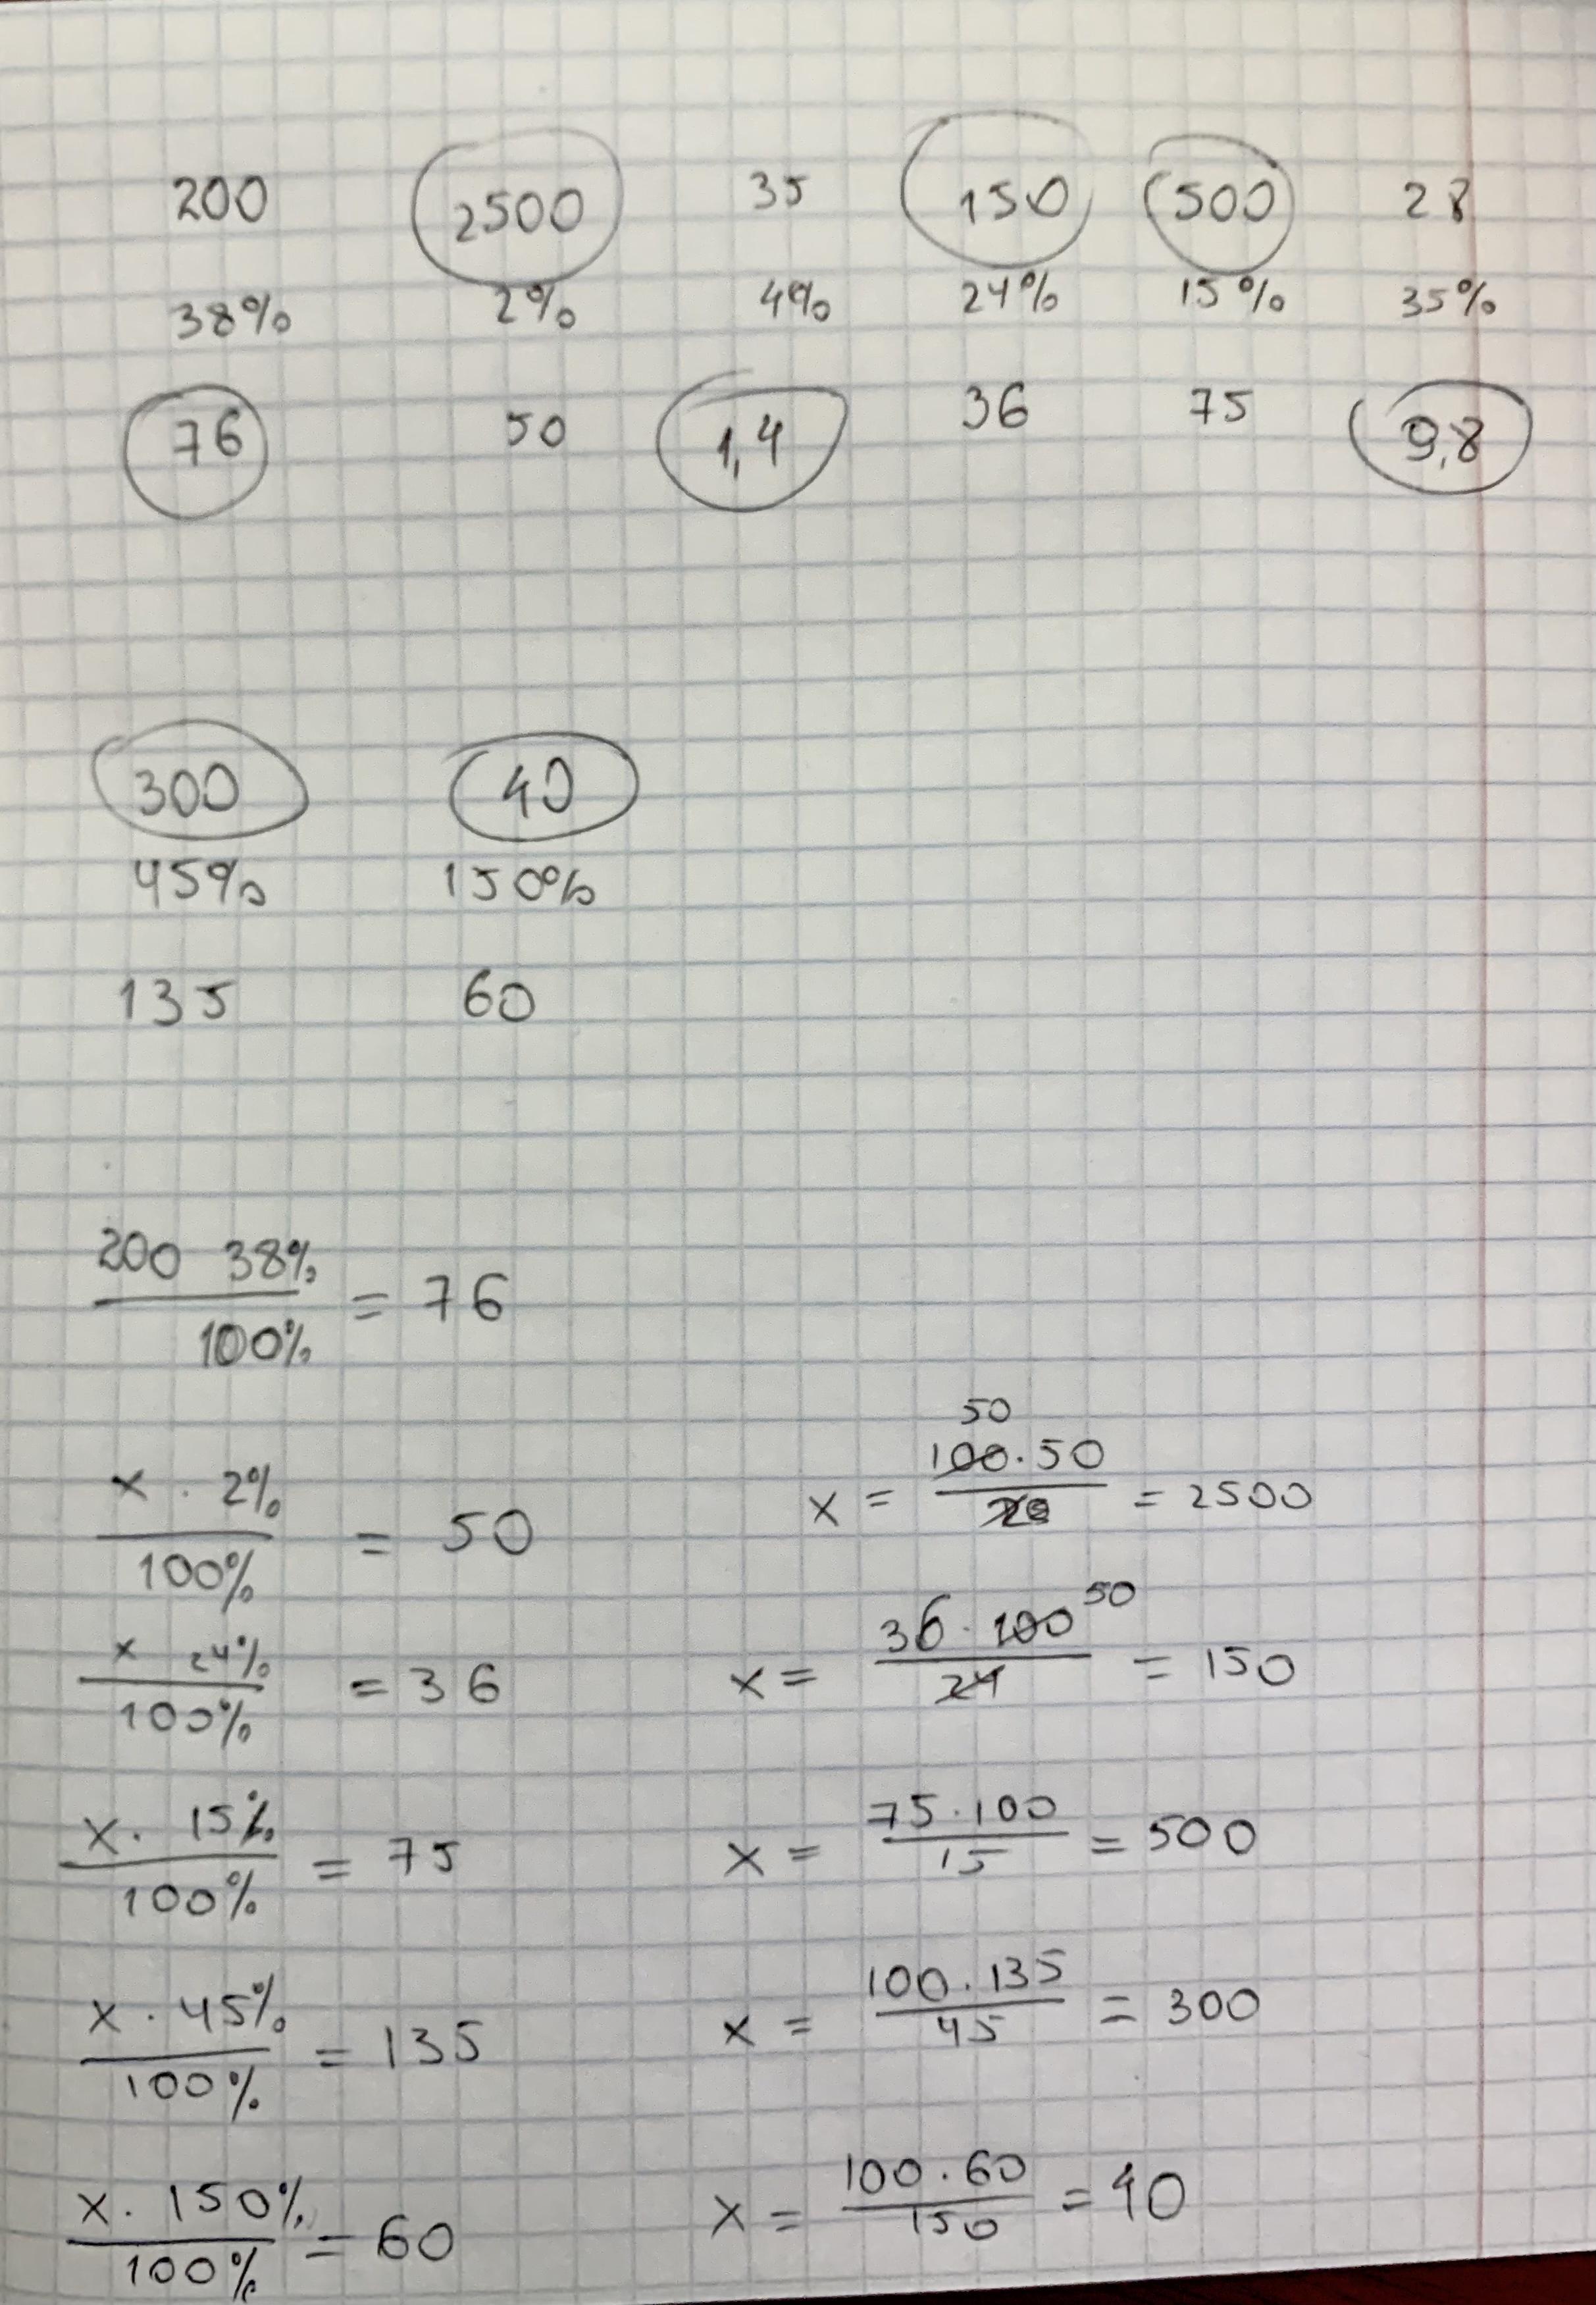 200 2500 35 150 500 28
38% 2% 4% 24% 15% 35%
76 50 1,4 36 75 9,8
300 40
45% 150%
135 60
200 38%
100%
= 76
x · 2%
100%
= 50
50
x = 100·50 / = 2500
x 24%
100%
= 36
50
x = 36·100 / 24 = 150
x · 15%
100%
= 75
x = 75·100 / 15 = 500
x · 45%
100%
= 135
x = 100·135 / 45 = 300
x · 150%
100%
= 60
x = 100·60 / 150 = 40